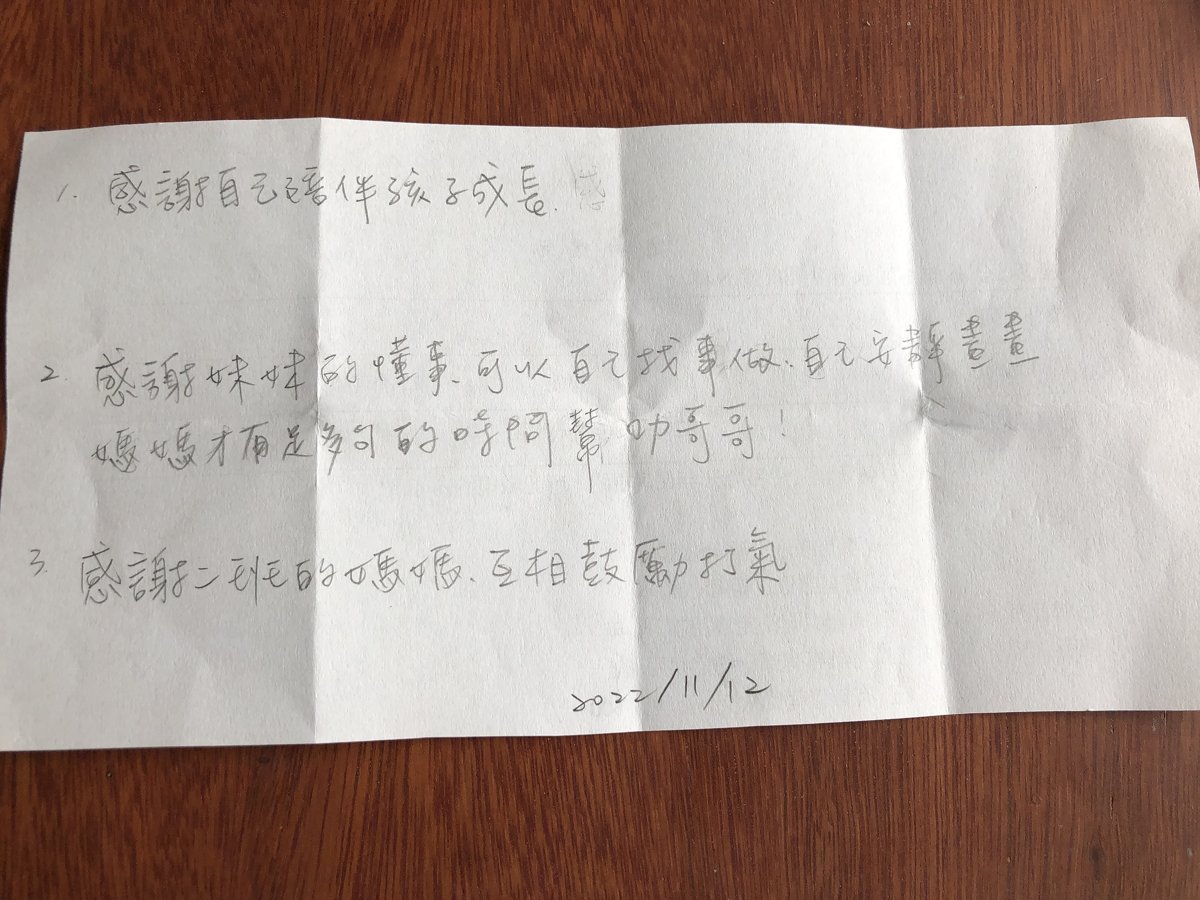 1. 感謝自己陪伴孩子成長.
2. 感謝妹妹的懂事、可以自己找事做、自己安靜畫畫
媽媽才有足夠的時間幫助哥哥!
3. 感謝二班的媽媽、互相鼓勵打氣
2022/11/12